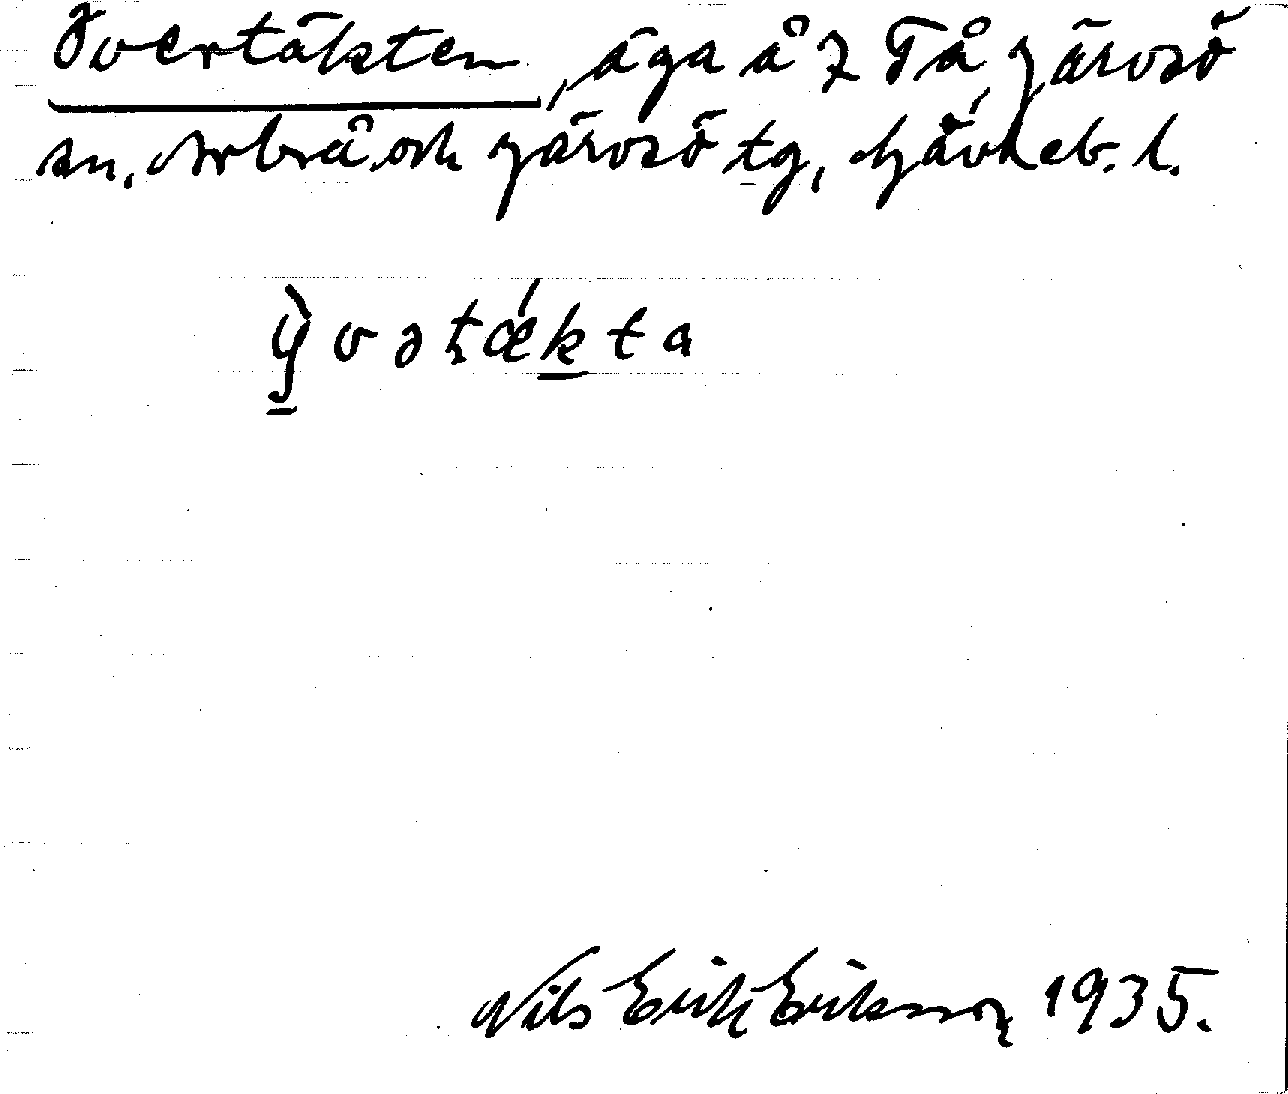 Övertäkten, äga å 7 Tå Järvsö
sn. Arbrå och Järvsö tg, Gävleb. l.
ỳvətǽkta
Nils Erik Eriksson 1935.